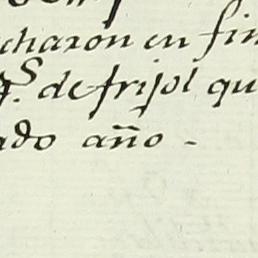 charon en fin
f.s de frijol qu
ado año -